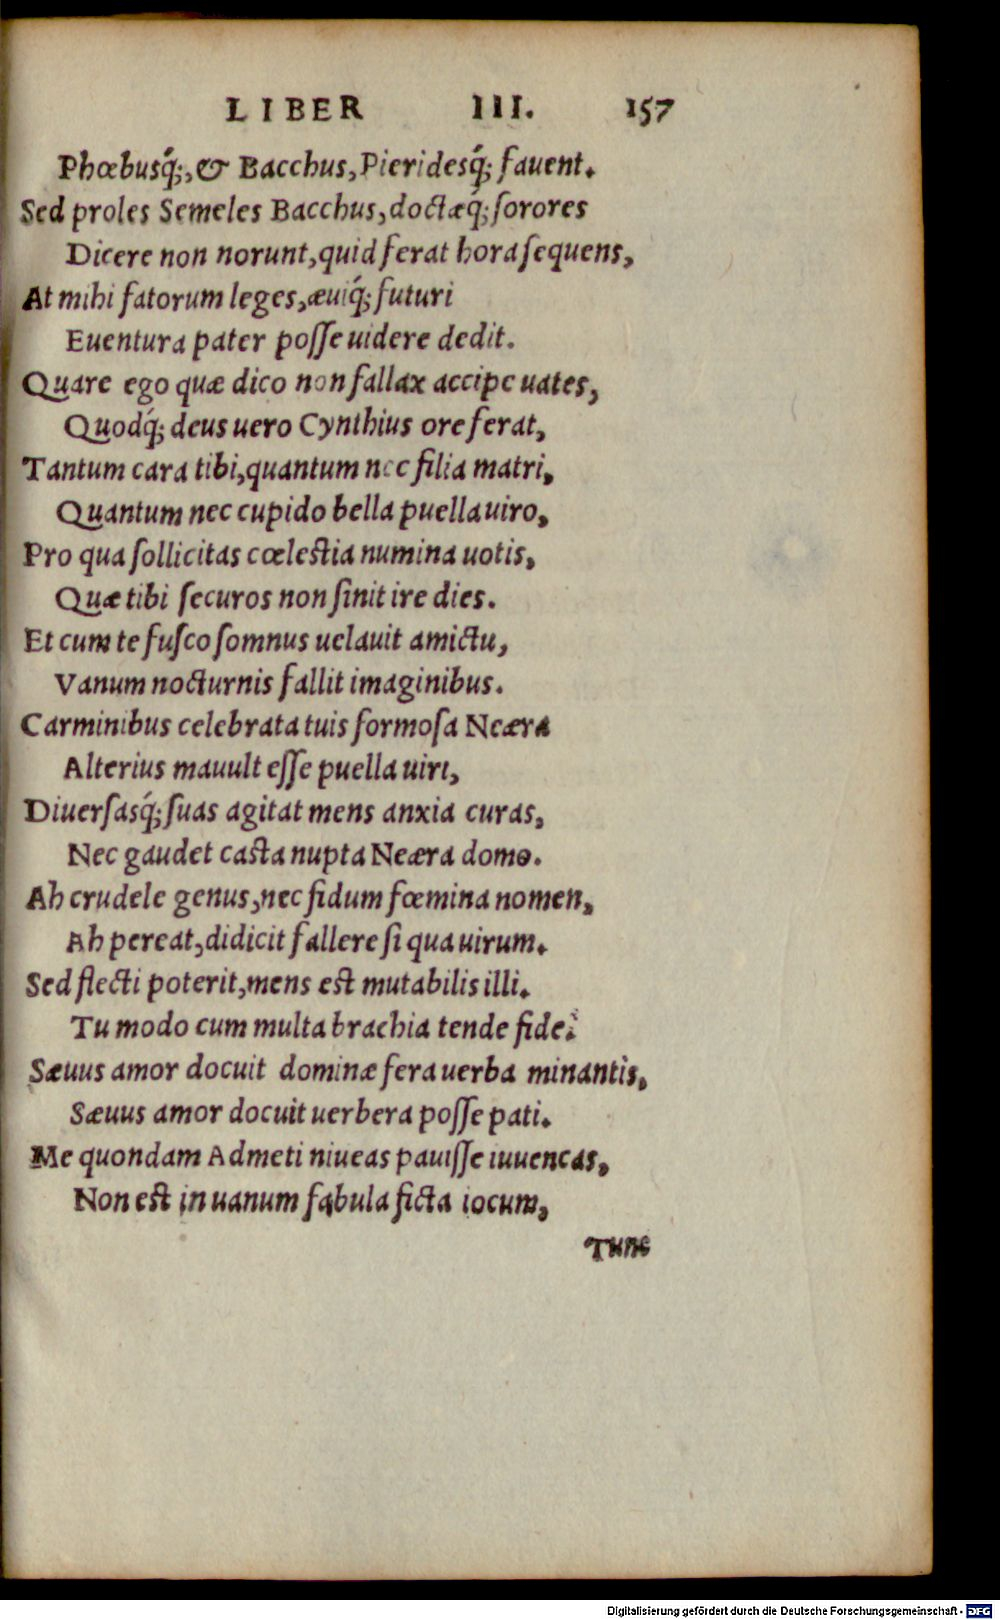 LIBER III. 157
Phœbusq́;, & Bacchus, Pieridesq́; fauent.
Sed proles Semeles Bacchus, doctæq́; ſorores
Dicere non norunt, quid ferat hora ſequens,
At mihi fatorum leges, æuiq́; futuri
Euentura pater poſſe uidere dedit.
Quare ego quæ dico non fallax accipe uates,
Quodq́; deus uero Cynthius ore ferat,
Tantum cara tibi, quantum nec filia matri,
Quantum nec cupido bella puella uiro,
Pro qua ſollicitas cœleſtia numina uotis,
Quæ tibi ſecuros non ſinit ire dies.
Et cum te fuſco ſomnus uelauit amictu,
Vanum nocturnis fallit imaginibus.
Carminibus celebrata tuis formoſa Neæra
Alterius mauult eſſe puella uiri,
Diuerſasq́; ſuas agitat mens anxia curas,
Nec gaudet caſta nupta Neæra domo.
Ah crudele genus, nec fidum fœmina nomen,
Ah pereat, didicit fallere ſi qua uirum.
Sed flecti poterit, mens eſt mutabilis illi.
Tu modo cum multa brachia tende fide.
Sæuus amor docuit dominæ fera uerba minantis,
Sæuus amor docuit uerbera poſſe pati.
Me quondam Admeti niueas pauiſſe iuuencas,
Non eſt in uanum fabula ficta iocum,
Tunc
Digitalisierung gefördert durch die Deutsche Forschungsgemeinschaft - DFG